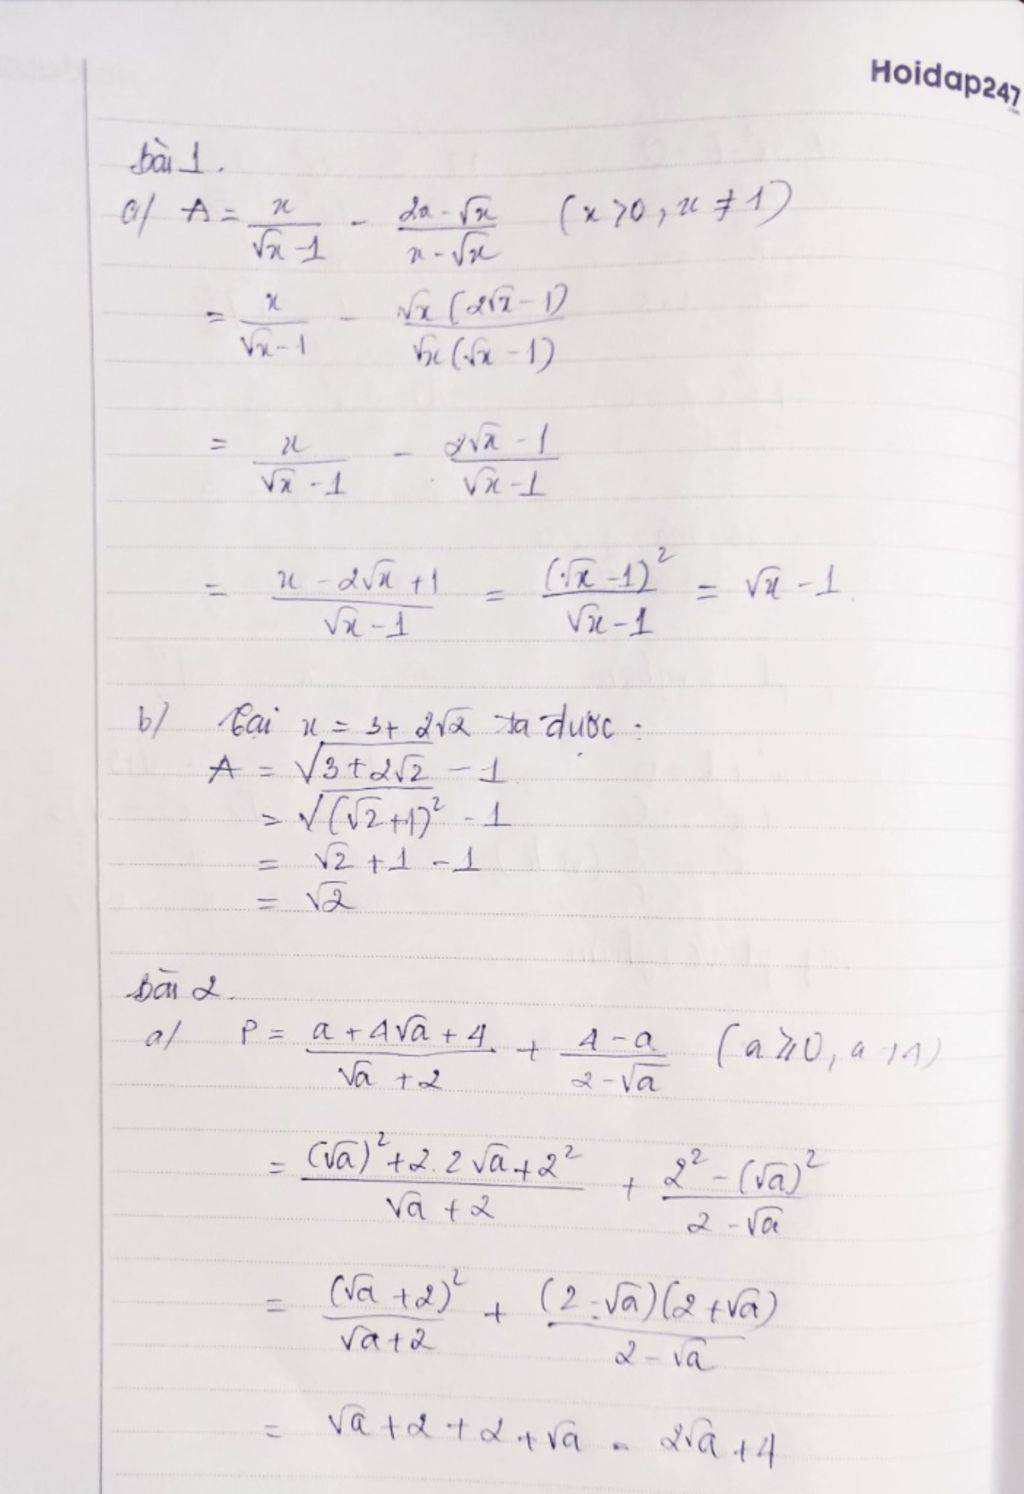 Hoidap247
Bài 1.
a/ A = x/(√x - 1) - (2x - √x)/(x - √x) (x > 0, x ≠ 1)
= x/(√x - 1) - √x(2√x - 1)/(√x(√x - 1))
= x/(√x - 1) - (2√x - 1)/(√x - 1)
= (x - 2√x + 1)/(√x - 1) = (√x - 1)²/(√x - 1) = √x - 1.
b/ Tại x = 3 + 2√2 ta được :
A = √(3 + 2√2) - 1
= √((√2 + 1)²) - 1
= √2 + 1 - 1
= √2
Bài 2.
a/ P = (a + 4√a + 4)/(√a + 2) + (4 - a)/(2 - √a) (a ⩾ 0, a ≠ 4)
= ((√a)² + 2.2√a + 2²)/(√a + 2) + (2² - (√a)²)/(2 - √a)
= (√a + 2)²/(√a + 2) + (2 - √a)(2 + √a)/(2 - √a)
= √a + 2 + 2 + √a = 2√a + 4